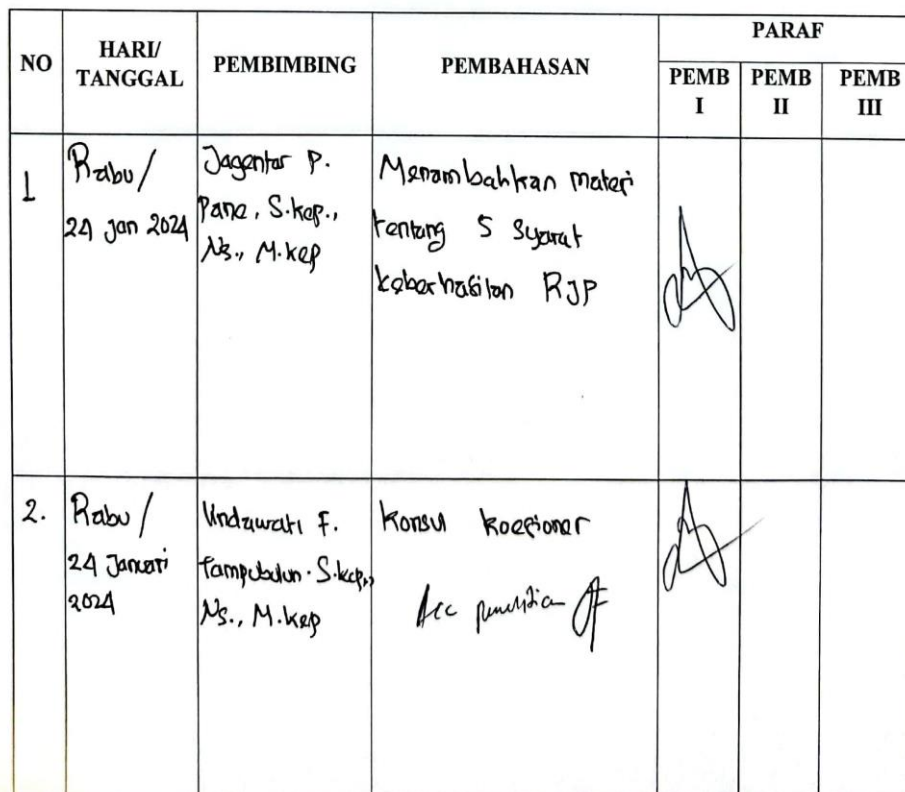 NO
HARI/
TANGGAL
PEMBIMBING
PEMBAHASAN
PARAF
PEMB
I
PEMB
II
PEMB
III
1
Rabu/
24 Jan 2024
Jagentar P.
Pane, S.kep.,
Ns., M.kep
Menambahkan materi
tentang 5 syarat
keberhasilan RJP
2.
Rabu/
24 Januari
2024
Lindawati F.
Tampubulun. S.kep.,
Ns., M.kep
Konsul koesioner
Acc penelitian